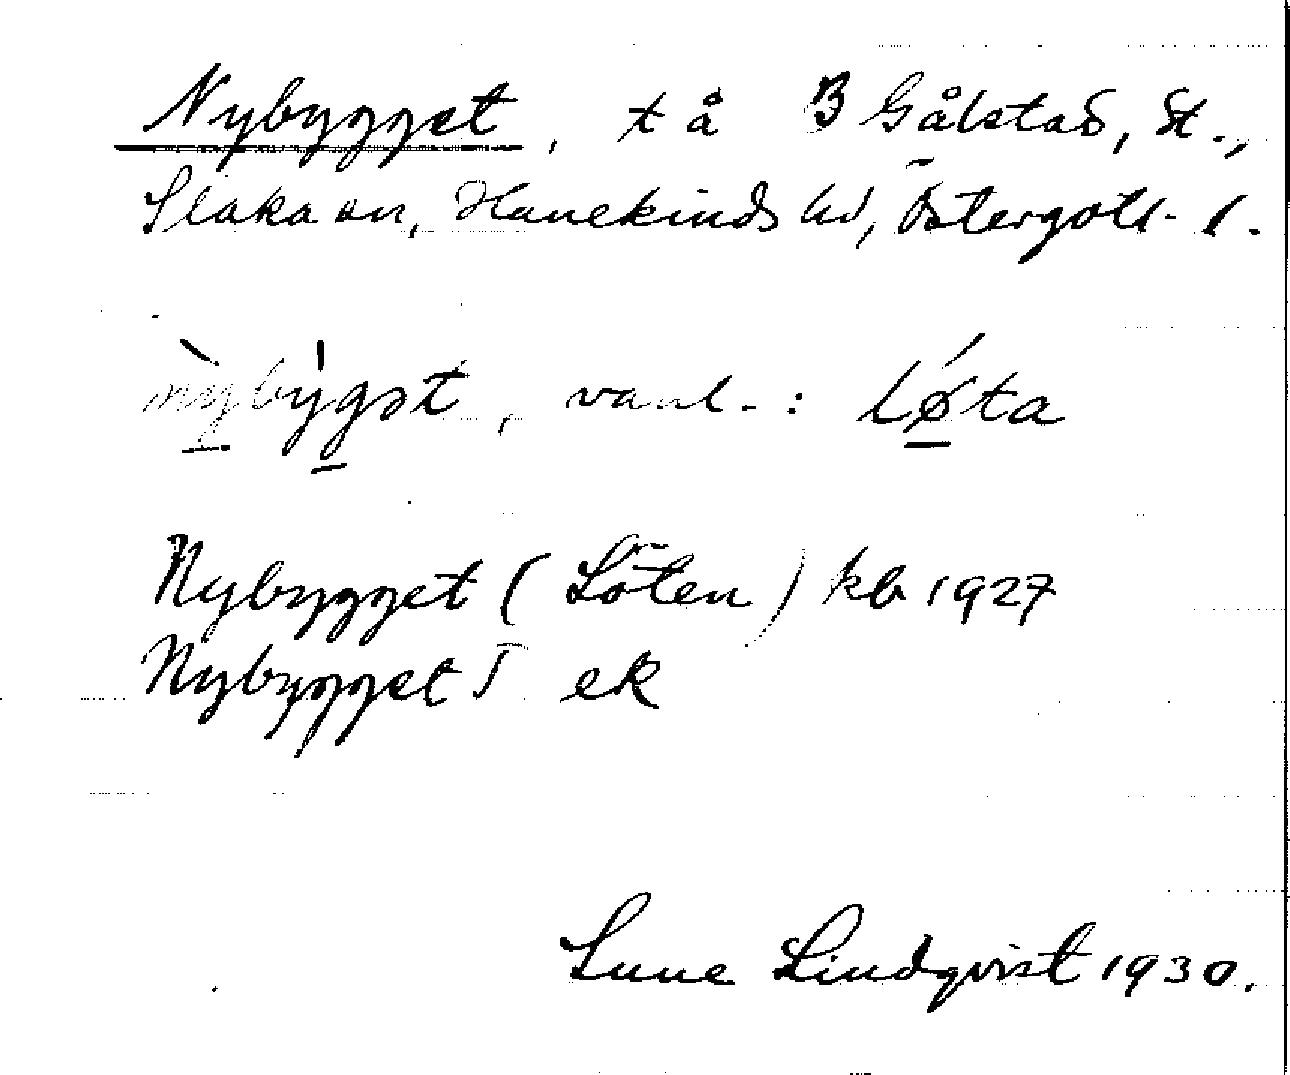 Nybygget, t å 3 Gålstad, St.,
Slaka sn, Hanekinds hd, Östergötl. l.
nỳbỳgət, vanl.: lǿta
Nybygget (Löten) kb 1927
Nybygget T ek
Sune Lindqvist 1930.